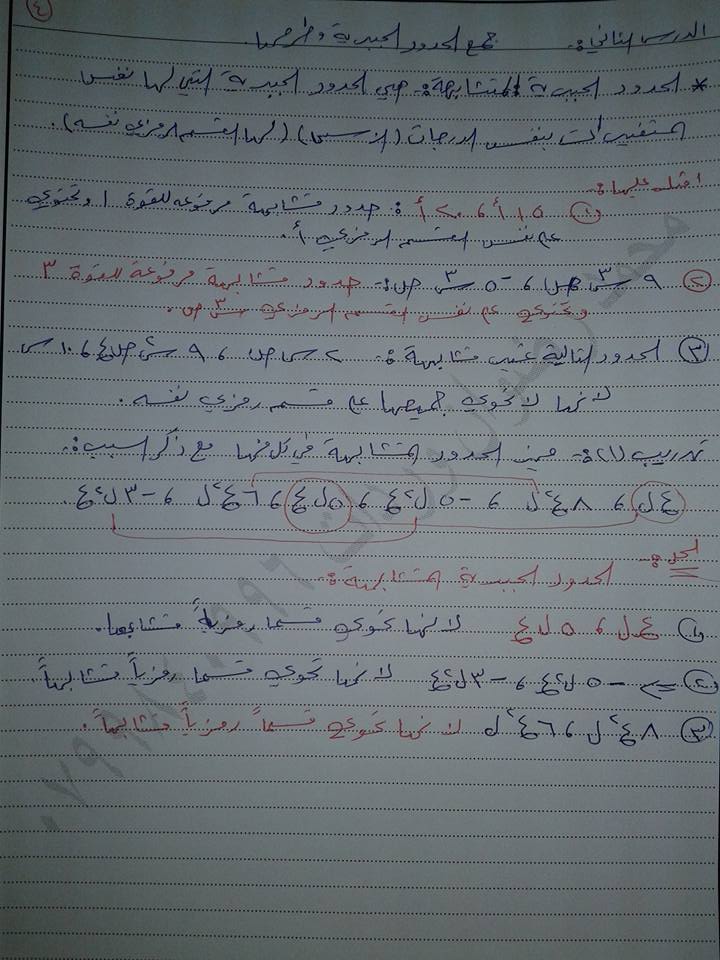 ٤
الدرس الثاني :- جمع الحدود الجبرية وطرحها
* الحدود الجبرية المتشابهة :- هي الحدود الجبرية التي لها نفس
المتغيرات بنفس الدرجات (الاسس) (لها القسم الرمزي نفسه).
امثلة عليها :-
① ١٥أ ، ٢٠أ : حدود متشابهة مرفوعة للقوة ١ وتحتوي
على نفس القسم الرمزي أ.
② ٩س٣ص ، -٥س٣ص :- حدود متشابهة مرفوعة للقوة ٣
وتحتوي على نفس القسم الرمزي س٣ص.
③ الحدود التالية غير متشابهة :- ٢س ص ، ٩س٢ص٤ ، ١٠س
لانها لا تحوي جميعها على قسم رمزي نفسه.
تدريب (١) :- عين الحدود المتشابهة في كل منها مع ذكر السبب :-
ع ل ، ٨ع٢ل ، -٥ل٢ع ، ٥ل ع ، ٦ع٢ل ، -٣ل٢ع
الحل :-
الحدود الجبرية المتشابهة :-
① ع ل ، ٥ل ع لانها تحوي قسما رمزياً متشابها.
② -٥ل٢ع ، -٣ل٢ع لانها تحوي قسما رمزياً متشابهاً
③ ٨ع٢ل ، ٦ع٢ل لانها تحوي قسماً رمزياً متشابهاً.